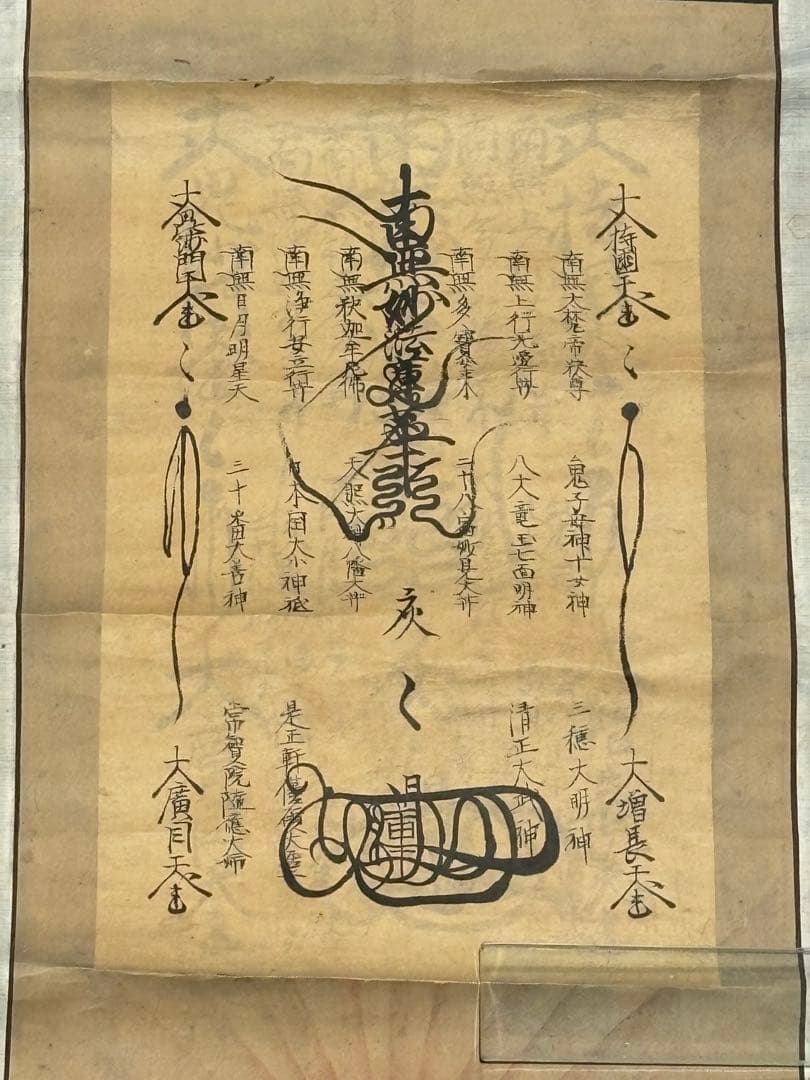 大持國天王
南無大梵帝釈尊
南無上行無邊行等
南無多寶如来
南無妙法蓮華経
南無釈迦牟尼佛
南無浄行安立行等
南無日月明星天
大毘沙門天王
鬼子母神十女神
八大竜王七面明神
天照大神八幡大神
日本国大小神祇
三十番大善神
大増長天王
三穂大明神
清正大武神
日
是正軒
常賢院隨應大師
大廣目天王